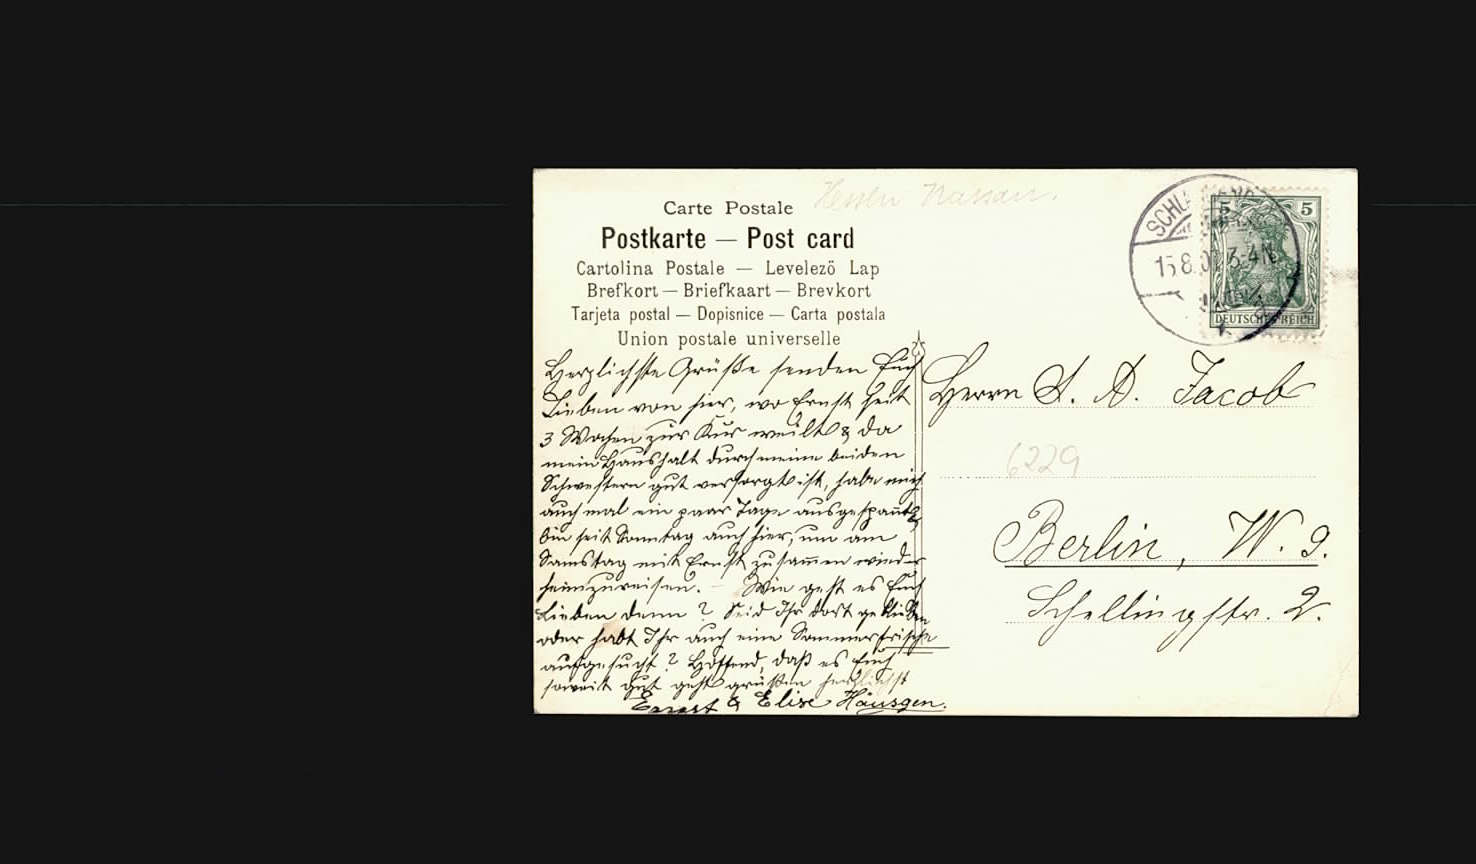 Hessen Nassau.
Carte Postale
Postkarte — Post card
Cartolina Postale — Levelezö Lap
Brefkort — Briefkaart — Brevkort
Tarjeta postal — Dopisnice — Carta postala
Union postale universelle
Herzlichste Grüße senden Euch
Lieben von hier, wo Ernst seit
3 Wochen zur Kur weilt & da
mein Haushalt durch meine beiden
Schwestern gut versorgt ist, habe mich
auch mal ein paar Tage ausgespannt &
bin seit Sonntag auch hier, um am
Samstag mit Ernst zusam̄en wieder
heimzureisen. — Wie geht es Euch
Lieben denn? Seid Ihr dort geblieben
oder habt Ihr auch eine Sommerfrische
aufgesucht? Hoffend, daß es Euch
soweit gut geht grüßen herzlichst
Ernst & Elise Häusgen.
15.8.07. 3-4N
5 5
DEUTSCHES REICH
Herrn S. A. Jacob
6229
Berlin, W. 9.
Schellingstr. 2.